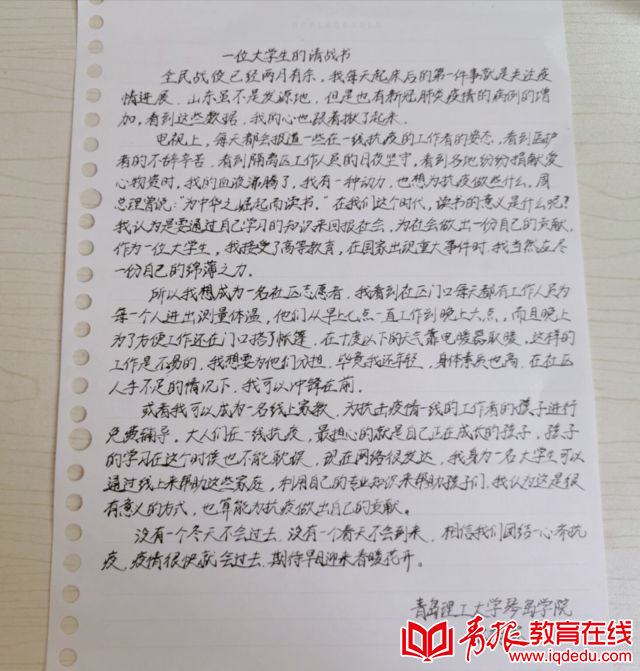 一位大学生的请战书
全民战役已经两月有余,我每天起床后的第一件事就是关注疫
情进展,山东虽不是发源地,但是也有新冠肺炎疫情的病例的增
加,看到这些数据,我的心也跟着揪了起来。
电视上,每天都会报道一些在一线抗疫的工作者的姿态,看到医护
者的不辞辛苦,看到隔离区工作人员的日夜坚守,看到各地纷纷捐献爱
心物资时,我的血液沸腾了,我有一种动力,也想为抗疫做些什么。周
总理曾说:“为中华之崛起而读书。”在我们这个时代,读书的意义是什么呢?
我认为是要通过自己学习的知识来回报社会,为社会做出一份自己的贡献。
作为一位大学生,我接受了高等教育,在国家出现重大事件时,我当然应尽
一份自己的绵薄之力。
所以我想成为一名社区志愿者,我看到社区门口每天都有工作人员为
每一个人进出测量体温,他们从早上七点一直工作到晚上六点,而且晚上
为了方便工作还在门口搭了帐篷,在十度以下的天气靠电暖器取暖,这样的
工作是不易的,我想要为他们分担,毕竟我还年轻,身体素质也高,在社区
人手不足的情况下,我可以冲锋在前。
或者我可以成为一名线上家教,为抗击疫情一线的工作者的孩子进行
免费辅导。大人们在一线抗疫,最担心的就是自己正在成长的孩子,孩子
的学习在这个时候也不能耽误,现在网络很发达,我身为一名大学生可以
通过线上来帮助这些家庭,利用自己的专业知识来帮助孩子们,我认为这是很
有意义的方式,也算能为抗疫做出自己的贡献。
没有一个冬天不会过去,没有一个春天不会到来,相信我们团结一心齐抗
疫,疫情很快就会过去,期待早日迎来春暖花开。
青岛理工大学琴岛学院
青报教育在线
www.iqdedu.com